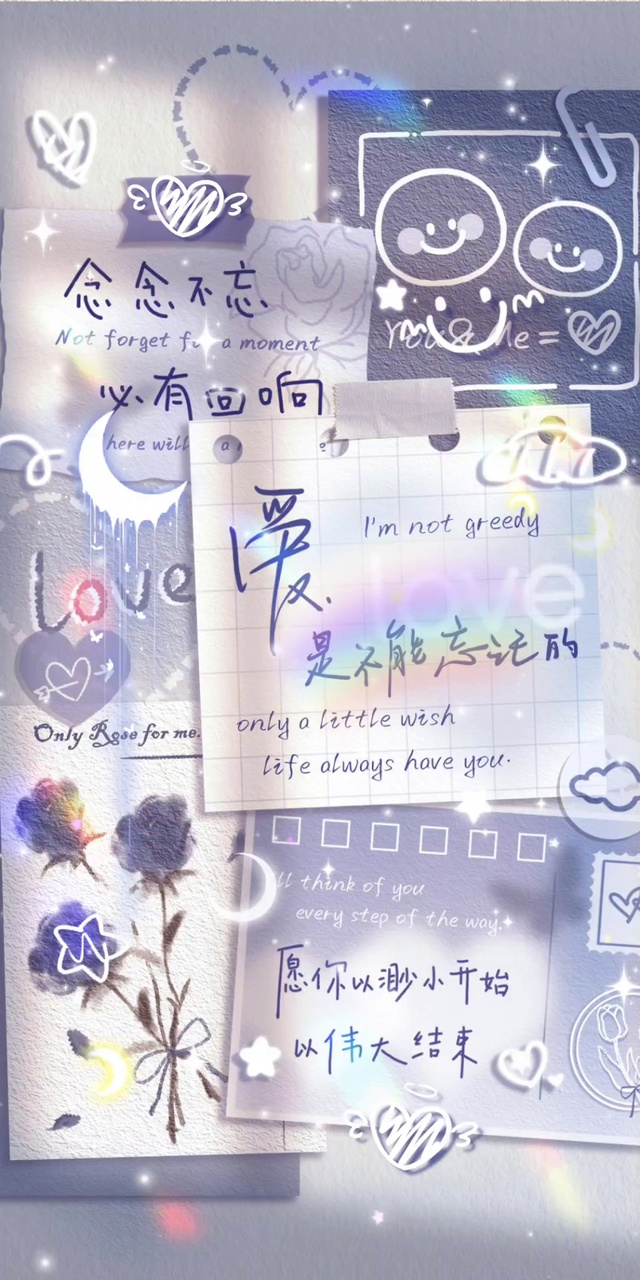 念念不忘
Not forget for a moment
You & Me =
必有回响
here will
love
Only Rose for me.
爱
I'm not greedy
love
是不能忘记的
only a little wish
life always have you.
I'll think of you
every step of the way.
愿你以渺小开始
以伟大结束